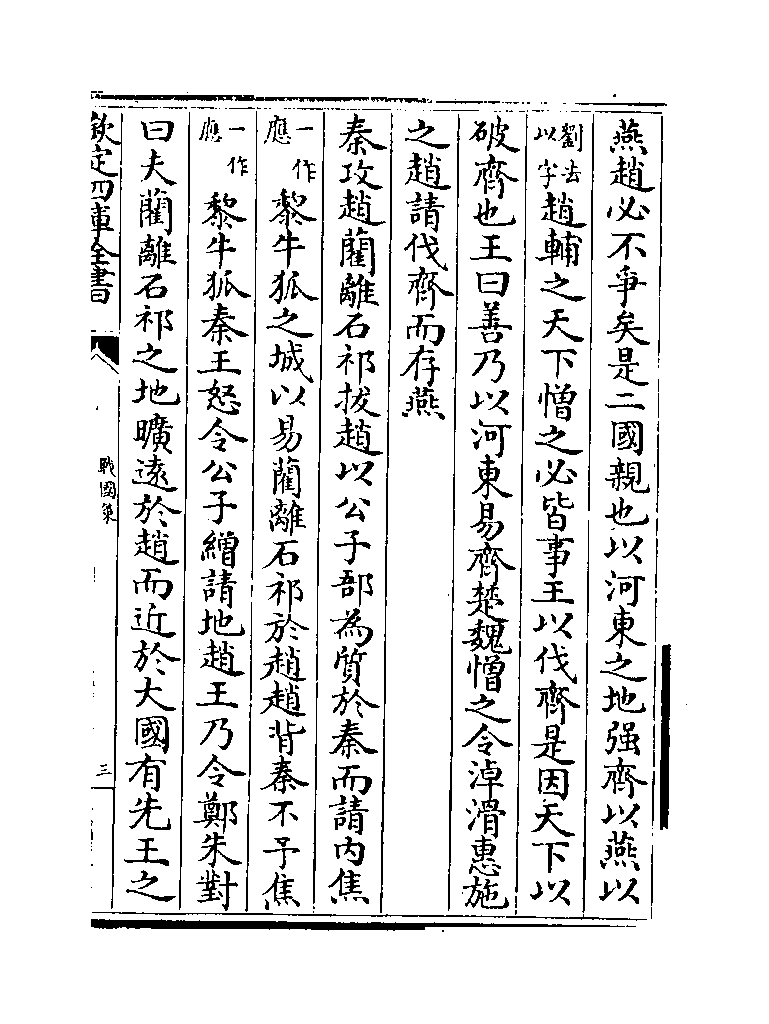 燕趙必不爭矣是二國親也以河東之地强齊以燕以
劉去以字趙輔之天下憎之必皆事王以伐齊是因天下以
破齊也王曰善乃以河東易齊楚魏憎之令淖滑惠施
之趙請伐齊而存燕
秦攻趙藺離石祁拔趙以公子郚為質於秦而請内焦
一作應黎牛狐之城以易藺離石祁於趙趙背秦不予焦
一作應黎牛狐秦王怒令公子繒請地趙王乃令鄭朱對
曰夫藺離石祁之地曠逺於趙而近於大國有先王之
欽定四庫全書
戰國策
三